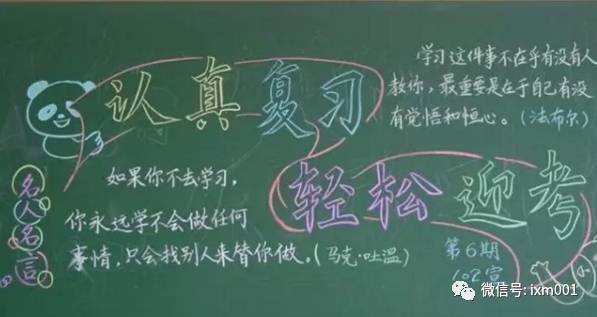 认真复习
学习这件事不在乎有没有人
教你，最重要是在于自己有没
有觉悟和恒心。（法布尔）
轻松迎考
名人名言
如果你不去学习，
你永远学不会做任何
事情，只会找别人来替你做。（马克·吐温）
第6期
102宣
微信号: ixm001